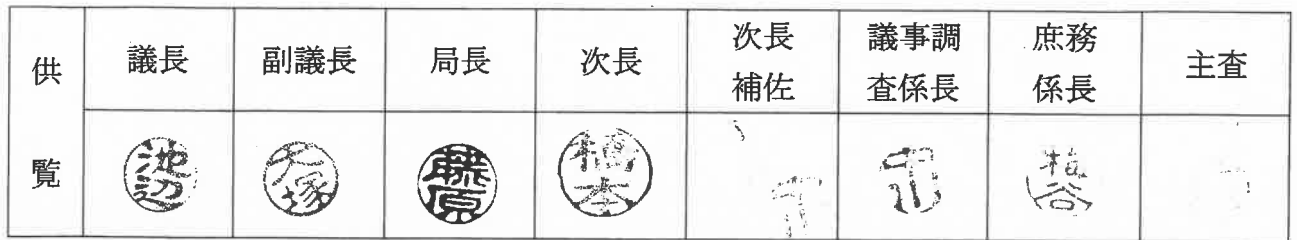 供覧
議長
副議長
局長
次長
次長補佐
議事調査係長
庶務係長
主査
池辺
大塚
藤原
橋本